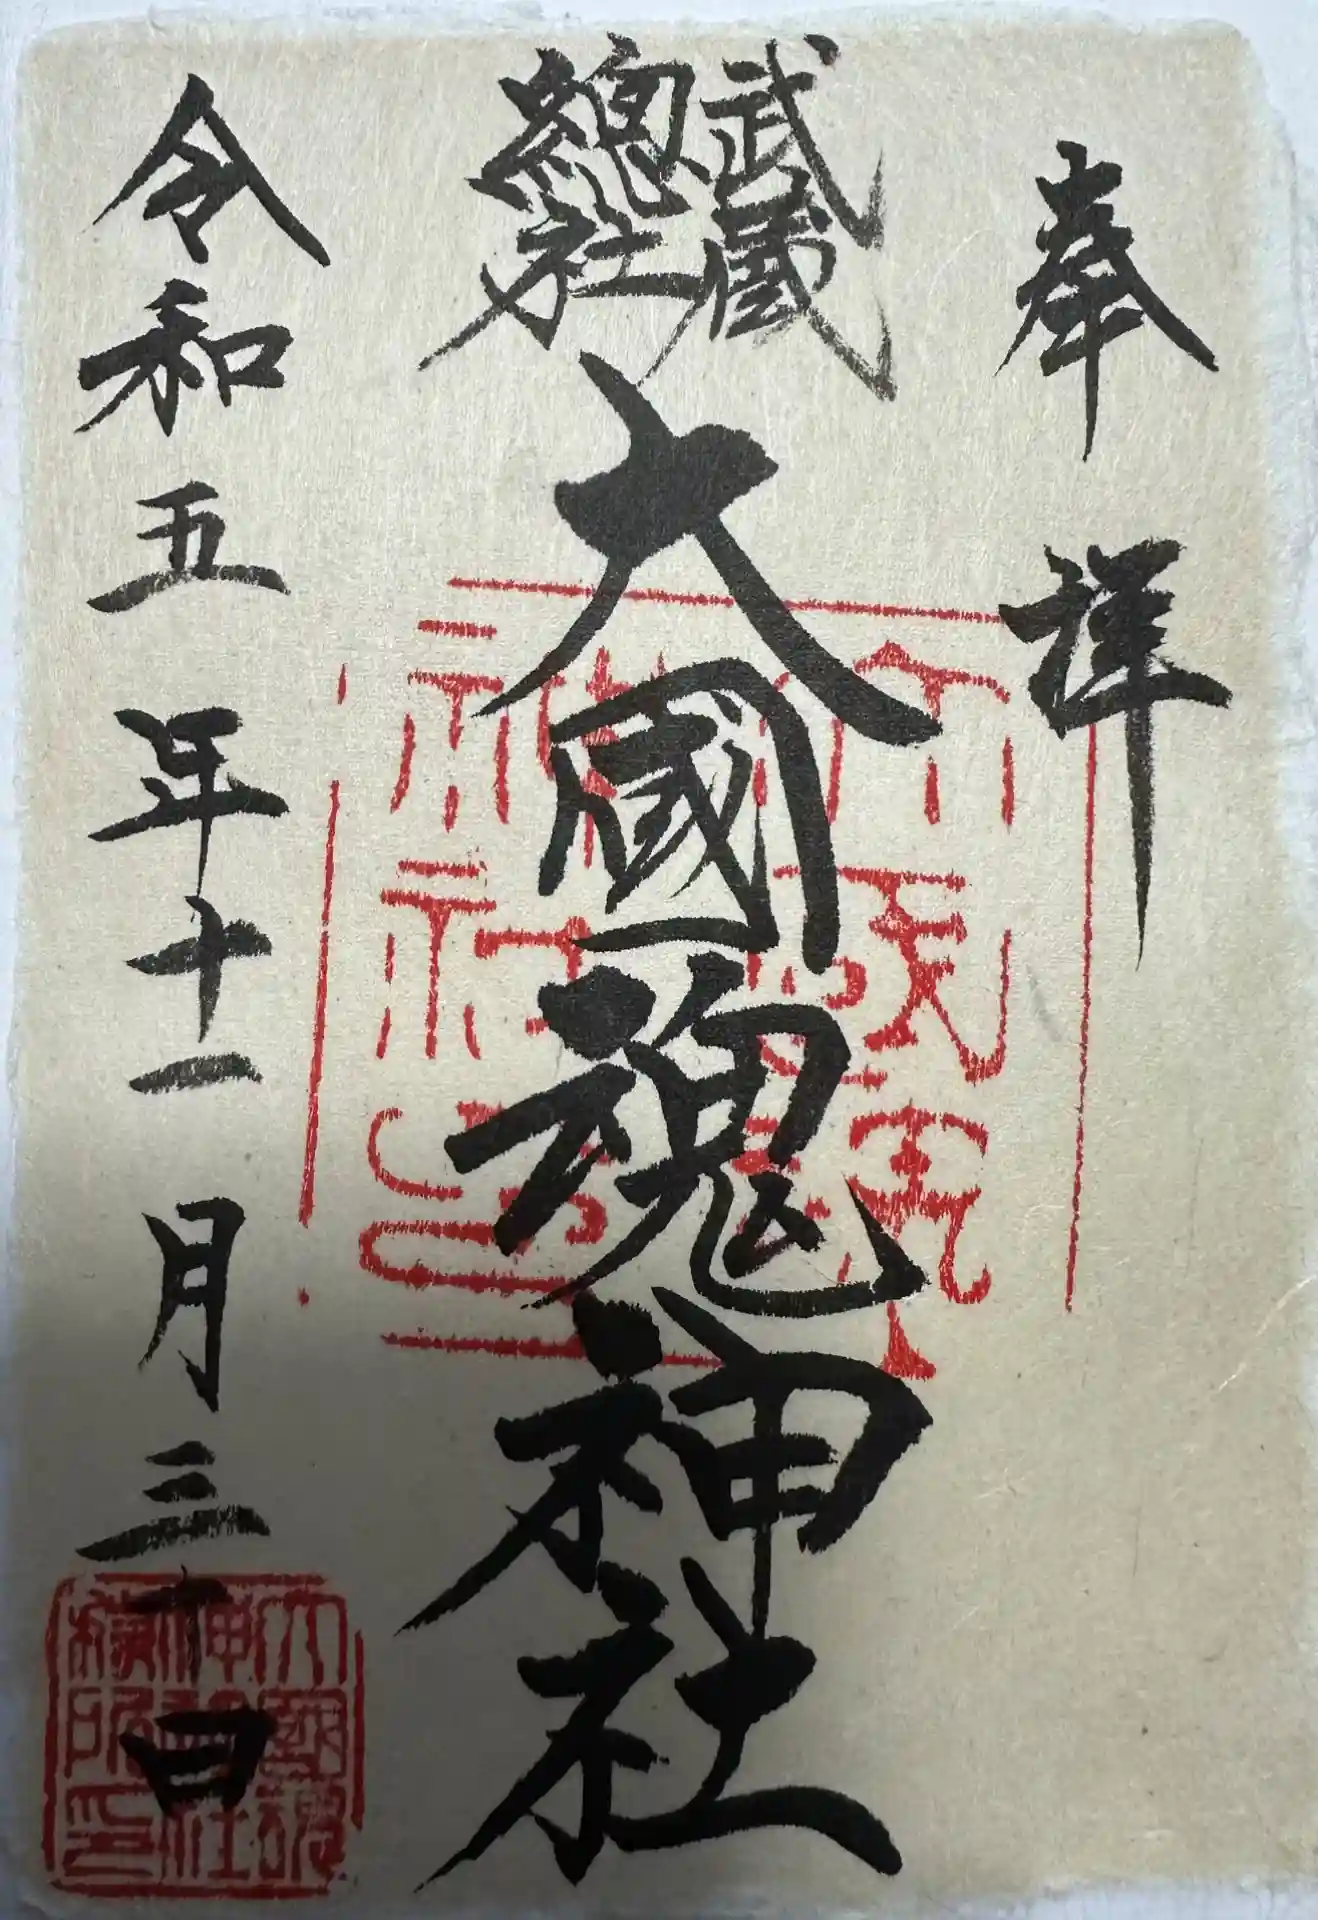 奉拝
武蔵
總社
大國魂神社
令和五年十一月三十日
大國魂
神社